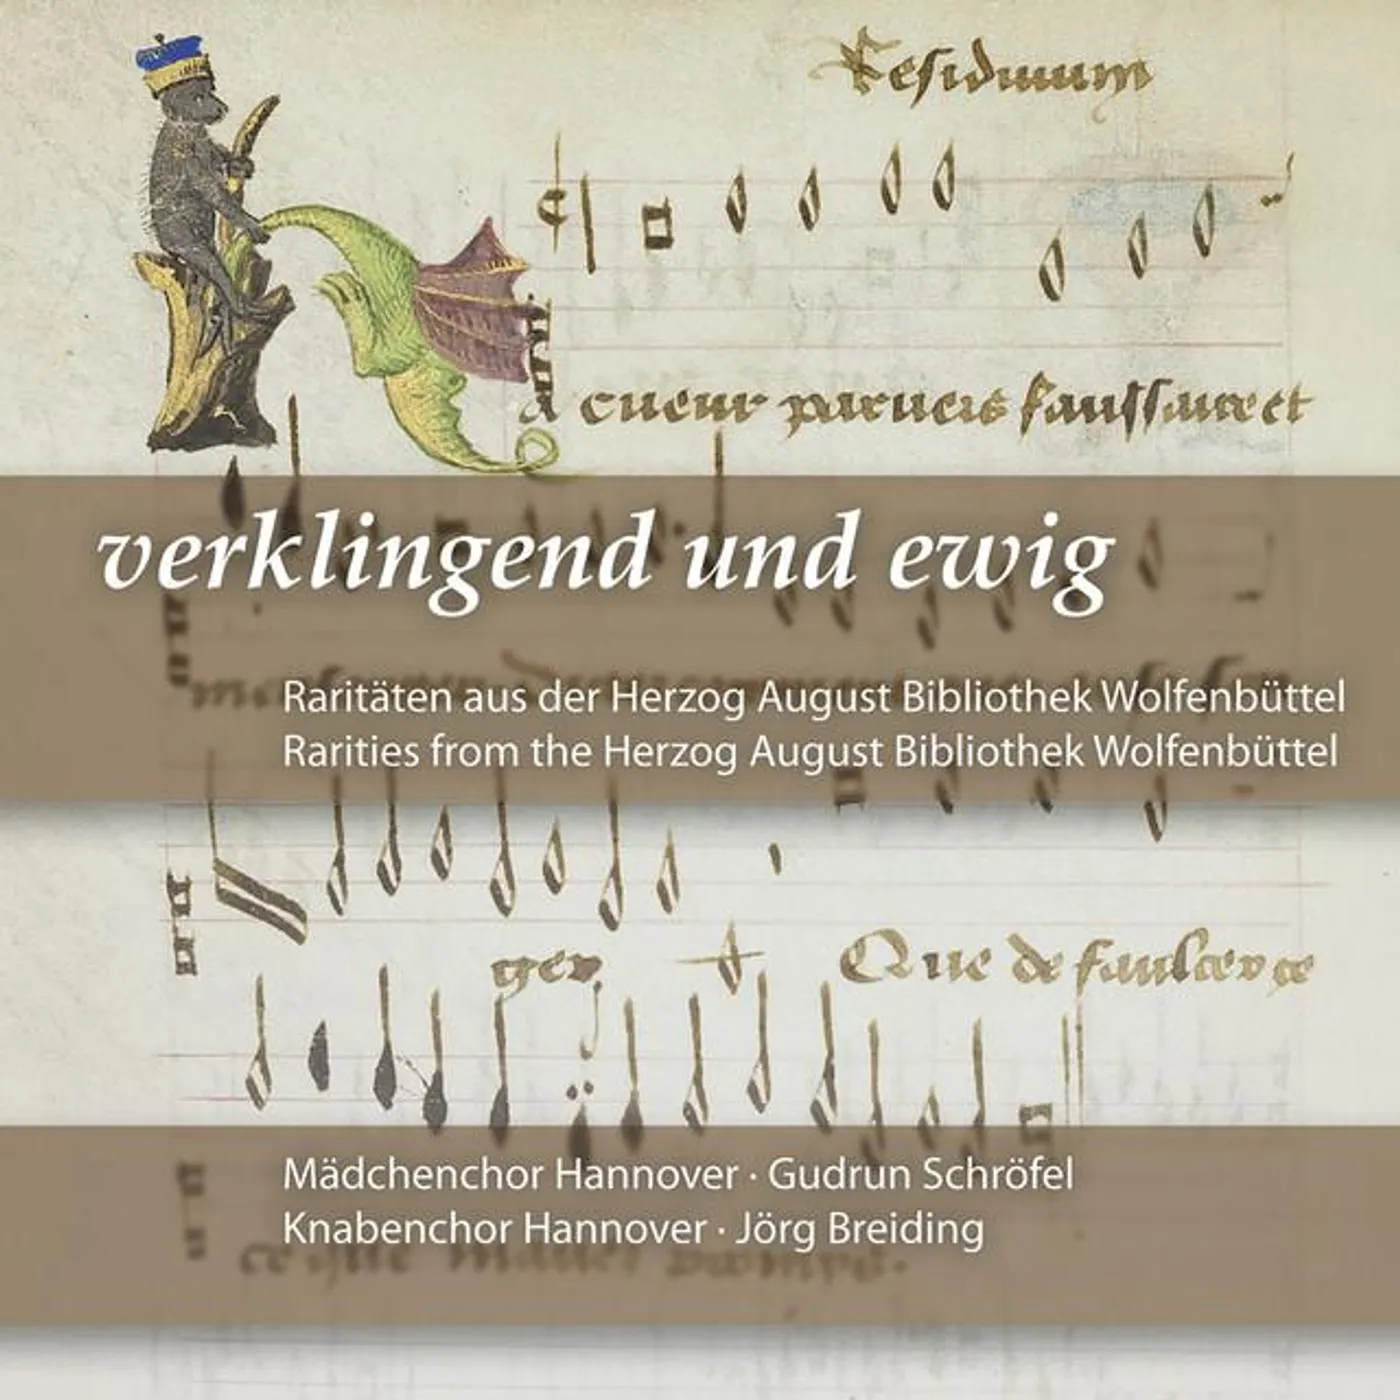 Residuum
a cueur parvers faulssaire et
verklingend und ewig
Raritäten aus der Herzog August Bibliothek Wolfenbüttel
Rarities from the Herzog August Bibliothek Wolfenbüttel
ger Que de faulcer ce
Mädchenchor Hannover · Gudrun Schröfel
Knabenchor Hannover · Jörg Breiding